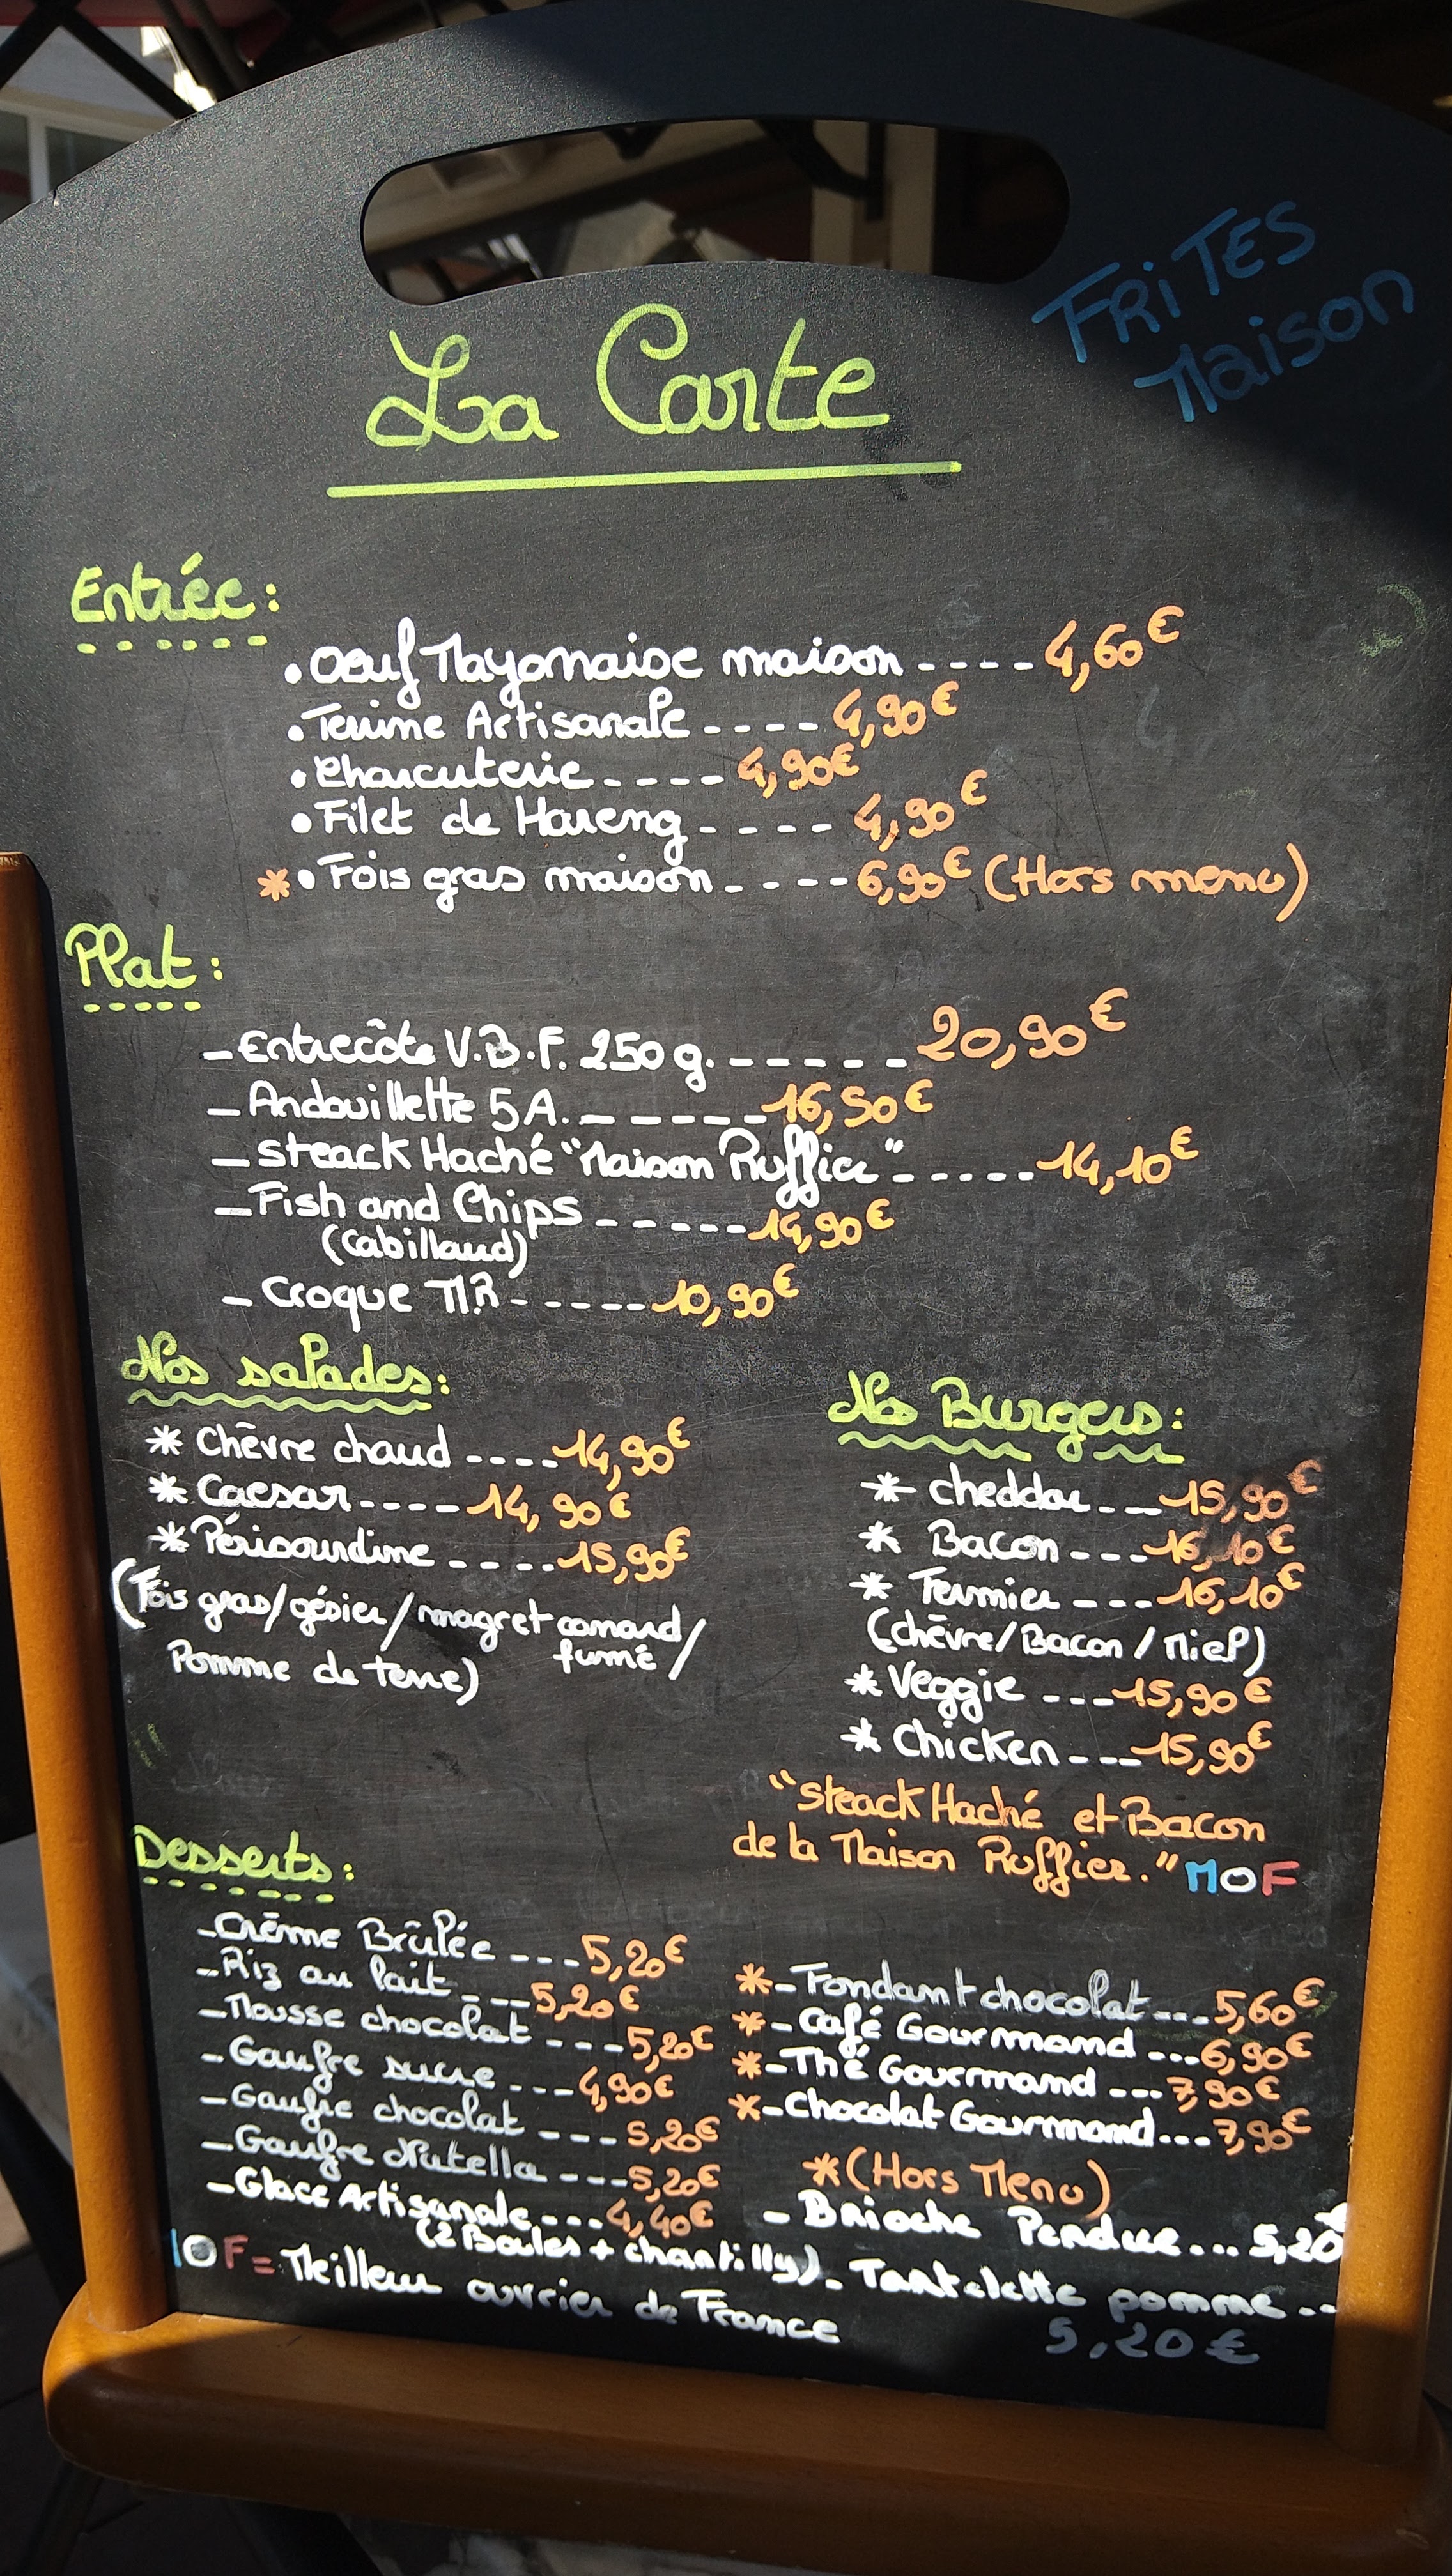 FRITES
Maison
La Carte
Entrée :
• Oeuf Mayonaise maison ---- 4,60€
• Terrine Artisanale ---- 4,90€
• Charcuterie ---- 4,90€
• Filet de Hareng ---- 4,90€
* • Fois gras maison ---- 6,90€ (Hors menu)
Plat :
- Entrecôte V.B.F. 250g. ------ 20,90€
- Andouillette 5A. ----- 16,50€
- Steack Haché "Maison Ruffier" ----- 14,10€
- Fish and Chips ----- 14,90€
(Cabillaud)
- Croque MR ----- 10,90€
Nos salades :
* Chèvre chaud ---- 14,90€
* Caesar ---- 14,90€
* Périgourdine ---- 15,90€
(Fois gras/gésier/magret canard/
fumé /
Pomme de terre)
Nos Burgers :
* cheddar --- 15,90€
* Bacon --- 16,10€
* Fermier --- 16,10€
(chèvre/Bacon/Miel)
* Veggie --- 15,90€
* Chicken --- 15,90€
"Steack Haché et Bacon
de la Maison Ruffier." MOF
Desserts :
- Crème Brûlée --- 5,20€
- Riz au lait --- 5,20€
- Mousse chocolat --- 5,20€
- Gaufre sucre --- 4,90€
- Gaufre chocolat --- 5,20€
- Gaufre Nutella --- 5,20€
- Glace Artisanale --- 4,40€
(2 Boules + chantilly)
* - Fondant chocolat --- 5,60€
* - Café Gourmand --- 6,90€
* - Thé Gourmand --- 7,90€
* - Chocolat Gourmand --- 7,90€
* (Hors Menu)
- Brioche Perdue ... 5,20€
- Tartelette pomme ..
5,20€
MOF = Meilleur ouvrier de France